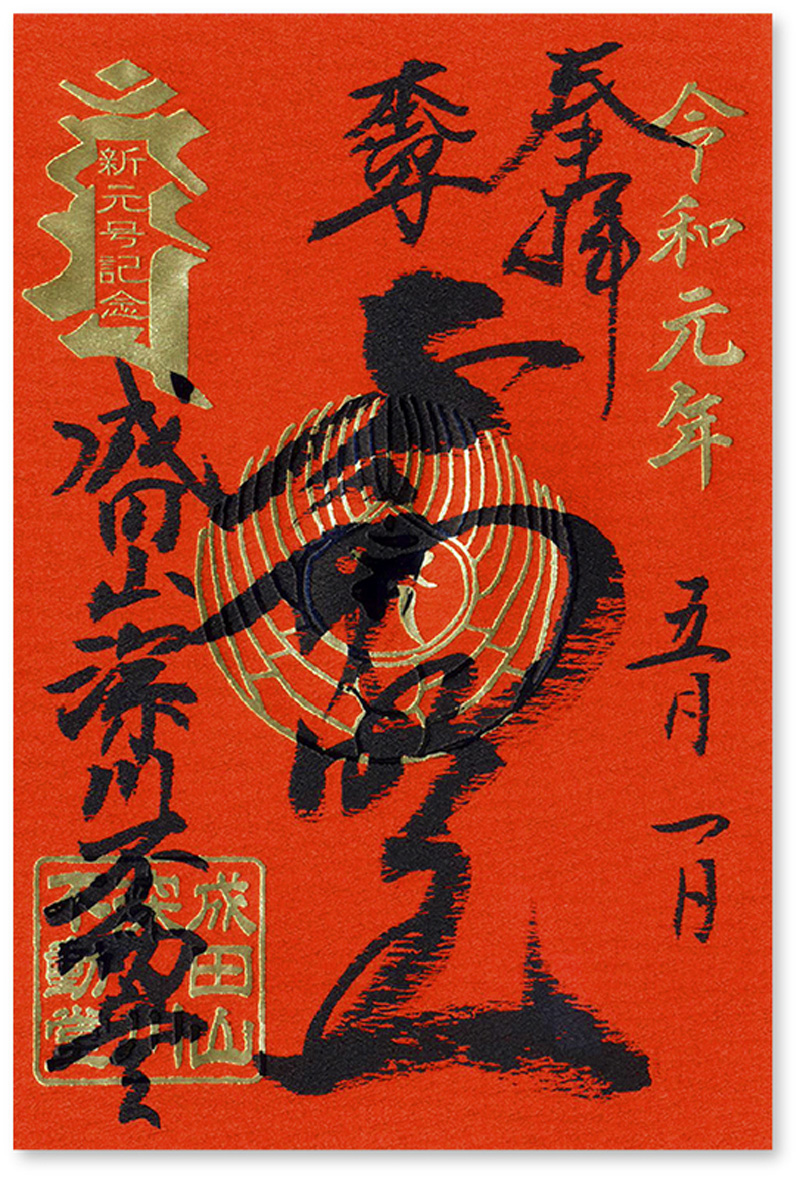 令和元年
五月一日
奉拝
本尊
不動明王
新元号記念
成田山深川不動堂
成田山
深川
不動堂